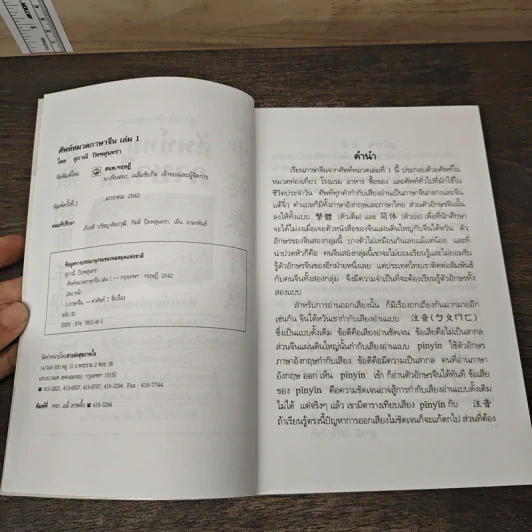 ศัพท์หมวดภาษาจีน เล่ม 1
โดย สุภาณี ปิยพสุนทรา
จัดพิมพ์โดย สนพ.ทฤษฎี
พิมพ์ครั้งที่ 1 มกราคม 2542
คณะที่ปรึกษา
ข้อมูลทางบรรณานุกรมของหอสมุดแห่งชาติ
สุภาณี ปิยพสุนทรา
ศัพท์หมวดภาษาจีน เล่ม 1 -- กรุงเทพฯ : ทฤษฎี, 2542.
1.ภาษาจีน -- คำศัพท์ I ชื่อเรื่อง
495.181
ISBN
จัดจำหน่ายโดย
กรุงเทพฯ 10150
คำนำ
เรียนภาษาจีนจากศัพท์หมวดเล่มที่ 1 นี้ ประกอบด้วยศัพท์ใน
หมวดท่องเที่ยว โรงแรม อาหาร ซื้อของ และศัพท์ทั่วไปที่มักใช้ใน
ชีวิตประจำวัน ศัพท์ทุกคำมีคำอ่านเป็นภาษาจีนกลางและจีน
แต้จิ๋ว คำแปลก็มีทั้งภาษาอังกฤษและภาษาไทย ส่วนตัวอักษรจีนนั้น
ลงให้ทั้งแบบ 繁體 (ตัวเต็ม) และ 简体 (ตัวย่อ) เพื่อที่นักศึกษา
จะได้ไม่งงเมื่อเจอตัวหนังสือของจีนแผ่นดินใหญ่กับจีนไต้หวัน ตัว
อักษรของจีนสองกลุ่มนี้ บางตัวไม่เหมือนกันเลยแม้แต่น้อย และที่
น่าปวดหัวก็คือ คนจีนสองกลุ่มนี้เขาจะไม่ยอมเรียนรู้และไม่ยอมรับ
รู้ตัวอักษรจีนของอีกฝ่ายหนึ่งเลย แต่ประเทศไทยเราติดต่อสัมพันธ์
กับคนจีนทั้งสองกลุ่ม จึงมีความจำเป็นที่จะต้องเรียนรู้ตัวอักษรทั้ง
สองแบบ
สำหรับการอ่านออกเสียงนั้น ก็มีเรื่องถกเถียงกันมากมายอีก
เช่นกัน จีนไต้หวันเขากำกับเสียงอ่านแบบ 注音 (ㄅㄆㄇㄈ)
ซึ่งเป็นแบบดั้งเดิม ข้อดีคือเสียงอ่านชัดเจน ข้อเสียคือไม่เป็นสากล
ส่วนจีนแผ่นดินใหญ่นั้นกำกับเสียงอ่านแบบ pīnyīn ใช้ตัวอักษร
ภาษาอังกฤษกำกับเสียง ข้อดีคือมีความเป็นสากล คนที่อ่านภาษา
อังกฤษ ออก เห็น pīnyīn เข้า ก็อ่านตัวอักษรจีนได้ทันที ข้อเสีย
ของ pīnyīn คือความชัดเจนอาจสู้การกำกับเสียงอ่านแบบดั้งเดิม
ไม่ได้ แต่จริงๆ แล้ว เขามีตารางเทียบเสียง pīnyīn กับ 注音
ถ้าเรียนรู้ตรงนี้ปัญหาการออกเสียงไม่ชัดเจนก็จะแก้ตกไป ส่วนที่ต้อง